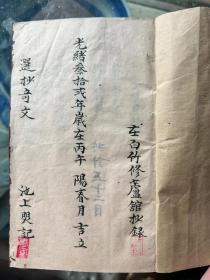 在白竹修盧舘抄錄
光緒叁拾弍年歲在丙午陽春月吉立
選抄奇文
池上㷼記